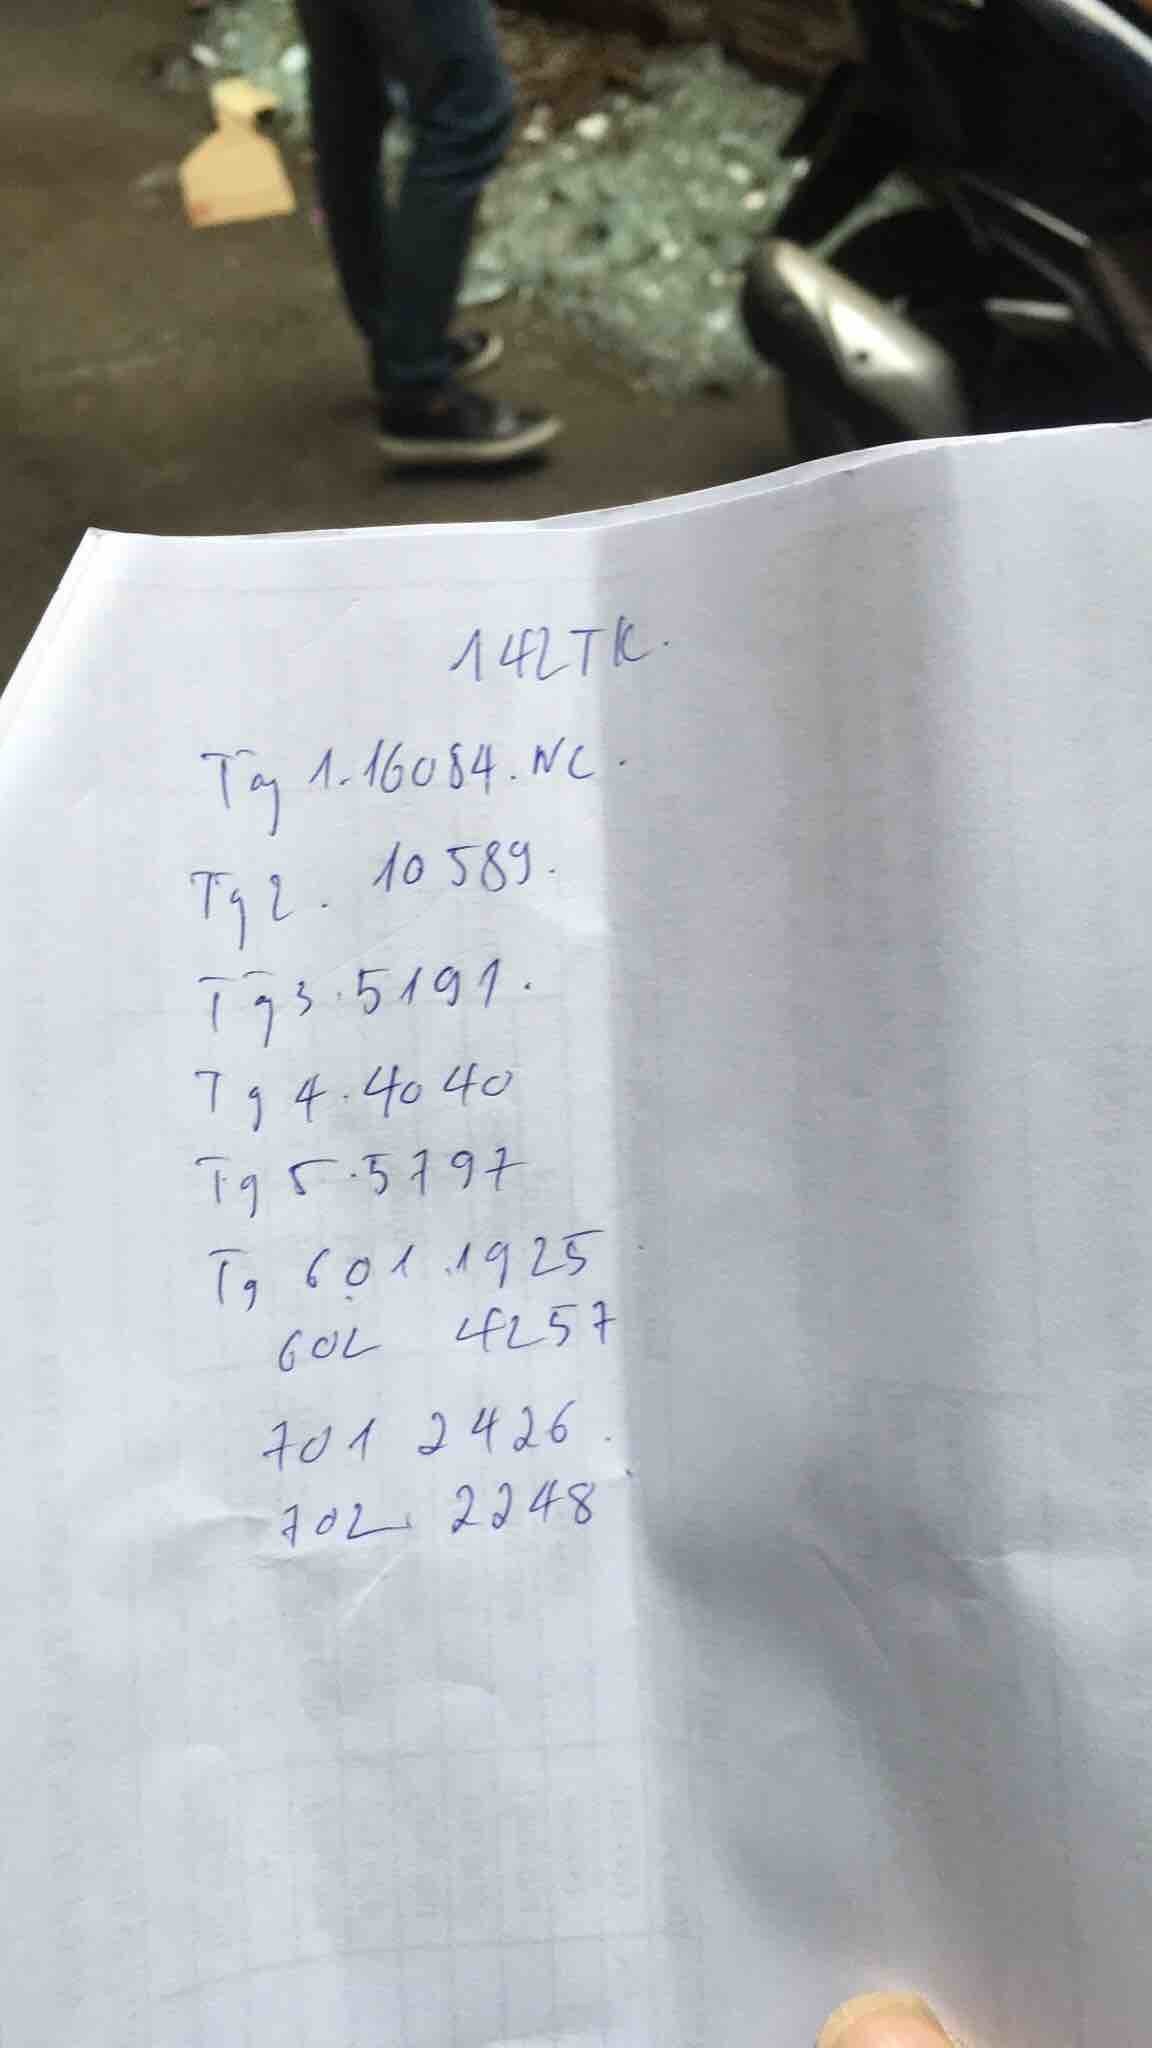 142TK.
Tg 1.16084.NC.
Tg 2. 10589.
Tg 3.5191.
Tg 4.4040
Tg 5.5797
Tg 601.1925
602 4257
701 2426.
702 2248